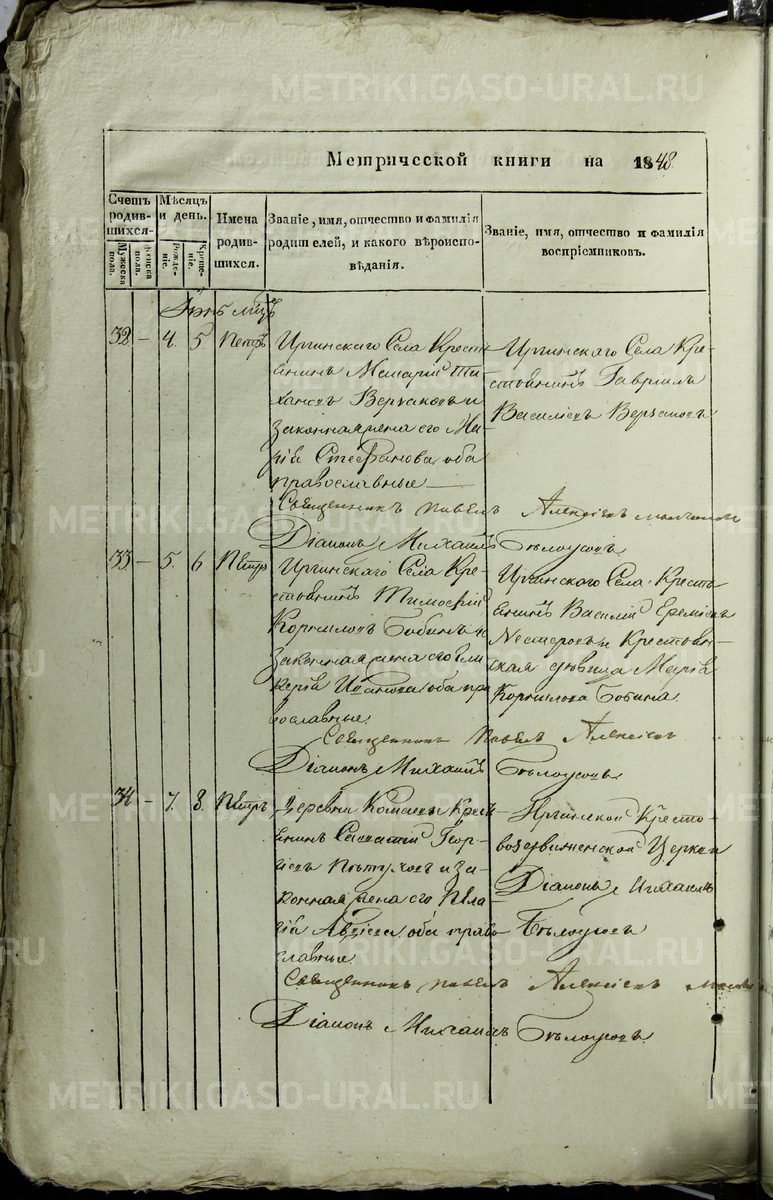 METRIKI.GASO-URAL.RU
Метрической книги на 1848
Счетъ родив-шихся.
Мужеска пола.
Женска пола.
Мѣсяцъ и день.
Рожде-ніе.
Креще-ніе.
Имена родив-шихся.
Званіе, имя, отчество и фамилія
родителей, и какого вѣроиспо-
вѣданія.
Званіе, имя, отчество и фамилія
воспріемниковъ.
32 – 4. 5. Петръ
Иргинскаго Села Кресть-
янинъ
законная жена его Ма-
рія Стефанова оба
православные
Иргинскаго Села Кре-
стьянинъ Гавріилъ
Василіевъ
Священникъ Павелъ Алексіевъ
Діаконъ Михаилъ Бѣлоусовъ
33 – 5. 6. Петръ
Иргинскаго Села Кре-
стьянинъ Тимофей
Корниловъ Бабинъ и
законная жена его Гли-
керія Иванова оба пра
вославные.
Иргинскаго Села Кресть
янинъ Василій Еремѣевъ
Нестеровъ и Крестьян-
ская дѣвица Марія
Корнилова Бабина.
Священникъ Павелъ Алексіевъ
Діаконъ Михаилъ Бѣлоусовъ
34 – 7. 8. Петръ
Деревни Кресть
янинъ Геор-
гіевъ Пѣтуховъ и за-
конная жена его Пела-
гія оба право
славные.
Иргинской Кресто-
воздвиженской Церкви
Діаконъ Михаилъ
Бѣлоусовъ
Священникъ Павелъ Алексіевъ
Діаконъ Михаилъ Бѣлоусовъ